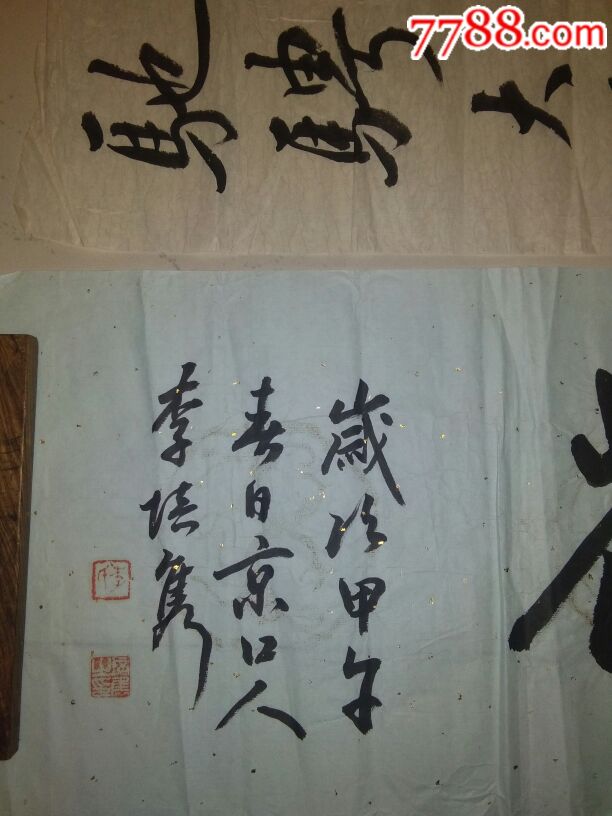 7788.com
馳騁大
歲次甲午
春日京口人
李培隽